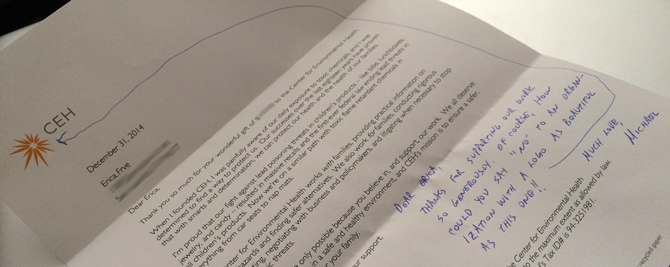 CEH
December 31, 2014
Erica Frye
Dear Erica,
Thank you so much for your wonderful gift of to the Center for Environmental Health.
When I founded CEH, I was painfully aware of our daily exposure to toxic chemicals, and I was
determined to find a way to protect us. Our successes over the last eighteen years have proven
that with smarts and determination, we can protect our health and the health of our families
I'm proud that our fight against lead poisoning threats in children's products – like bibs, lunchboxes,
jewelry, and candy – resulted in massive recalls and the first-ever federal law ending lead threats in
all children's products. Now we're on a similar path with toxic flame retardant chemicals in
everything from car seats to nap mats.
Center for Environmental Health works with families, providing practical information on
hazards and finding safer alternatives. We also work for families, conducting rigorous
testing, negotiating with business and policymakers, and litigating when necessary to stop
threats.
only possible because you believe in, and support, our work. We all deserve
in a safe and healthy environment, and CEH's mission is to ensure a safer,
for your family.
support.
DEAR ERICA,
THANKS FOR SUPPORTING OUR WORK
SO GENEROUSLY. OF COURSE, HOW
COULD YOU SAY "NO" TO AN ORGAN-
IZATION WITH A LOGO AS BEAUTIFUL
AS THIS ONE!!
MUCH LOVE,
MICHAEL
the Center for Environmental Health
to the maximum extent as allowed by law.
Tax ID# is 94-3251981.
recycled paper